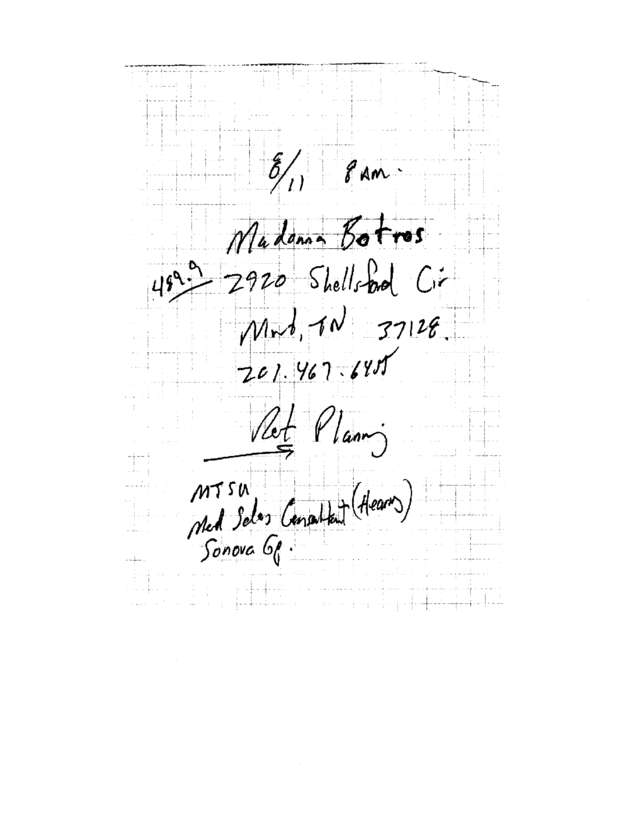 8/11 8 AM.
Madonna Botros
489.9 2920 Shellsford Cir
Murf, TN 37128.
201.467.6455
Ret Planning
MTSU
Med Sales Consultant (Hearing)
Sonova Gp.